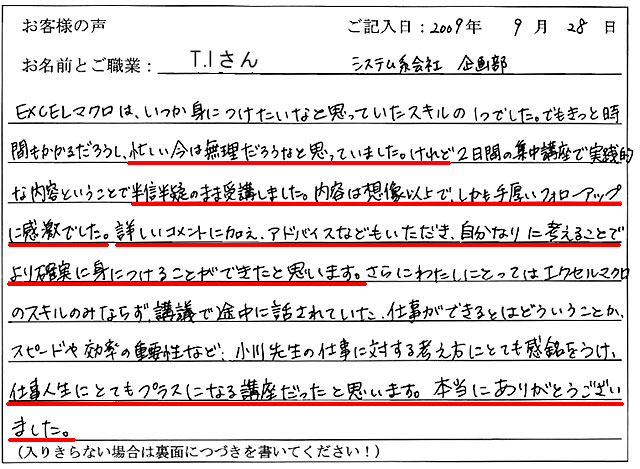 お客様の声 ご記入日：2009年 9月 28日
お名前とご職業： T.Iさん システム系会社 企画部
EXCELマクロは、いつか身につけたいなと思っていたスキルの1つでした。でもきっと時
間もかかるだろうし、忙しい今は無理だろうなと思っていました。けれど2日間の集中講座で実践的
な内容ということで半信半疑のまま受講しました。内容は想像以上で、しかも手厚いフォローアップ
に感激でした。詳しいコメントに加え、アドバイスなどもいただき、自分なりに考えることで
より確実に身につけることができたと思います。さらにわたしにとってはエクセルマクロ
のスキルのみならず、講議で途中に話されていた、仕事ができるとはどういうことか、
スピードや効率の重要性など、小川先生の仕事に対する考え方にとても感銘をうけ、
仕事人生にとてもプラスになる講座だったと思います。本当にありがとうござい
ました。
（入りきらない場合は裏面につづきを書いてください！）